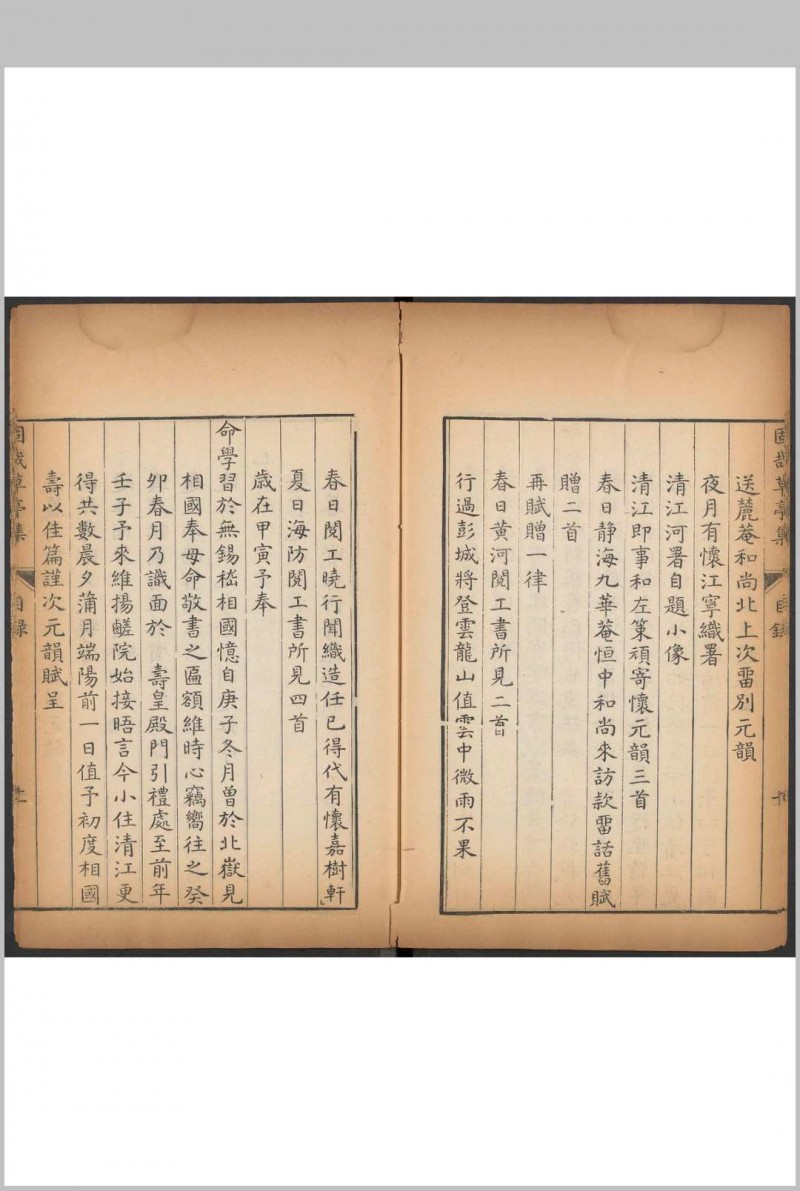 固哉草亭集
目錄
十
送麓菴和尚北上次畱別元韻
夜月有懷江寧織署
清江河署自題小像
清江即事和左策頑寄懷元韻三首
春日靜海九華菴恒中和尚來訪款畱話舊賦
贈二首
再賦贈一律
春日黃河閱工書所見二首
行過彭城將登雲龍山值雲中微雨不果
春日閱工曉行聞織造任已得代有懷嘉樹軒
夏日海防閱工書所見四首
歲在甲寅予奉
命學習於無錫嵇相國憶自庚子冬月曾於北嶽見
相國奉母命敬書之匾額維時心竊嚮往之癸
卯春月乃識面於 壽皇殿門引禮處至前年
壬子予來維揚鹺院始接晤言今小住清江更
得共數晨夕蒲月端陽前一日值予初度相國
壽以佳篇謹次元韻賦呈
固哉草亭集
目錄